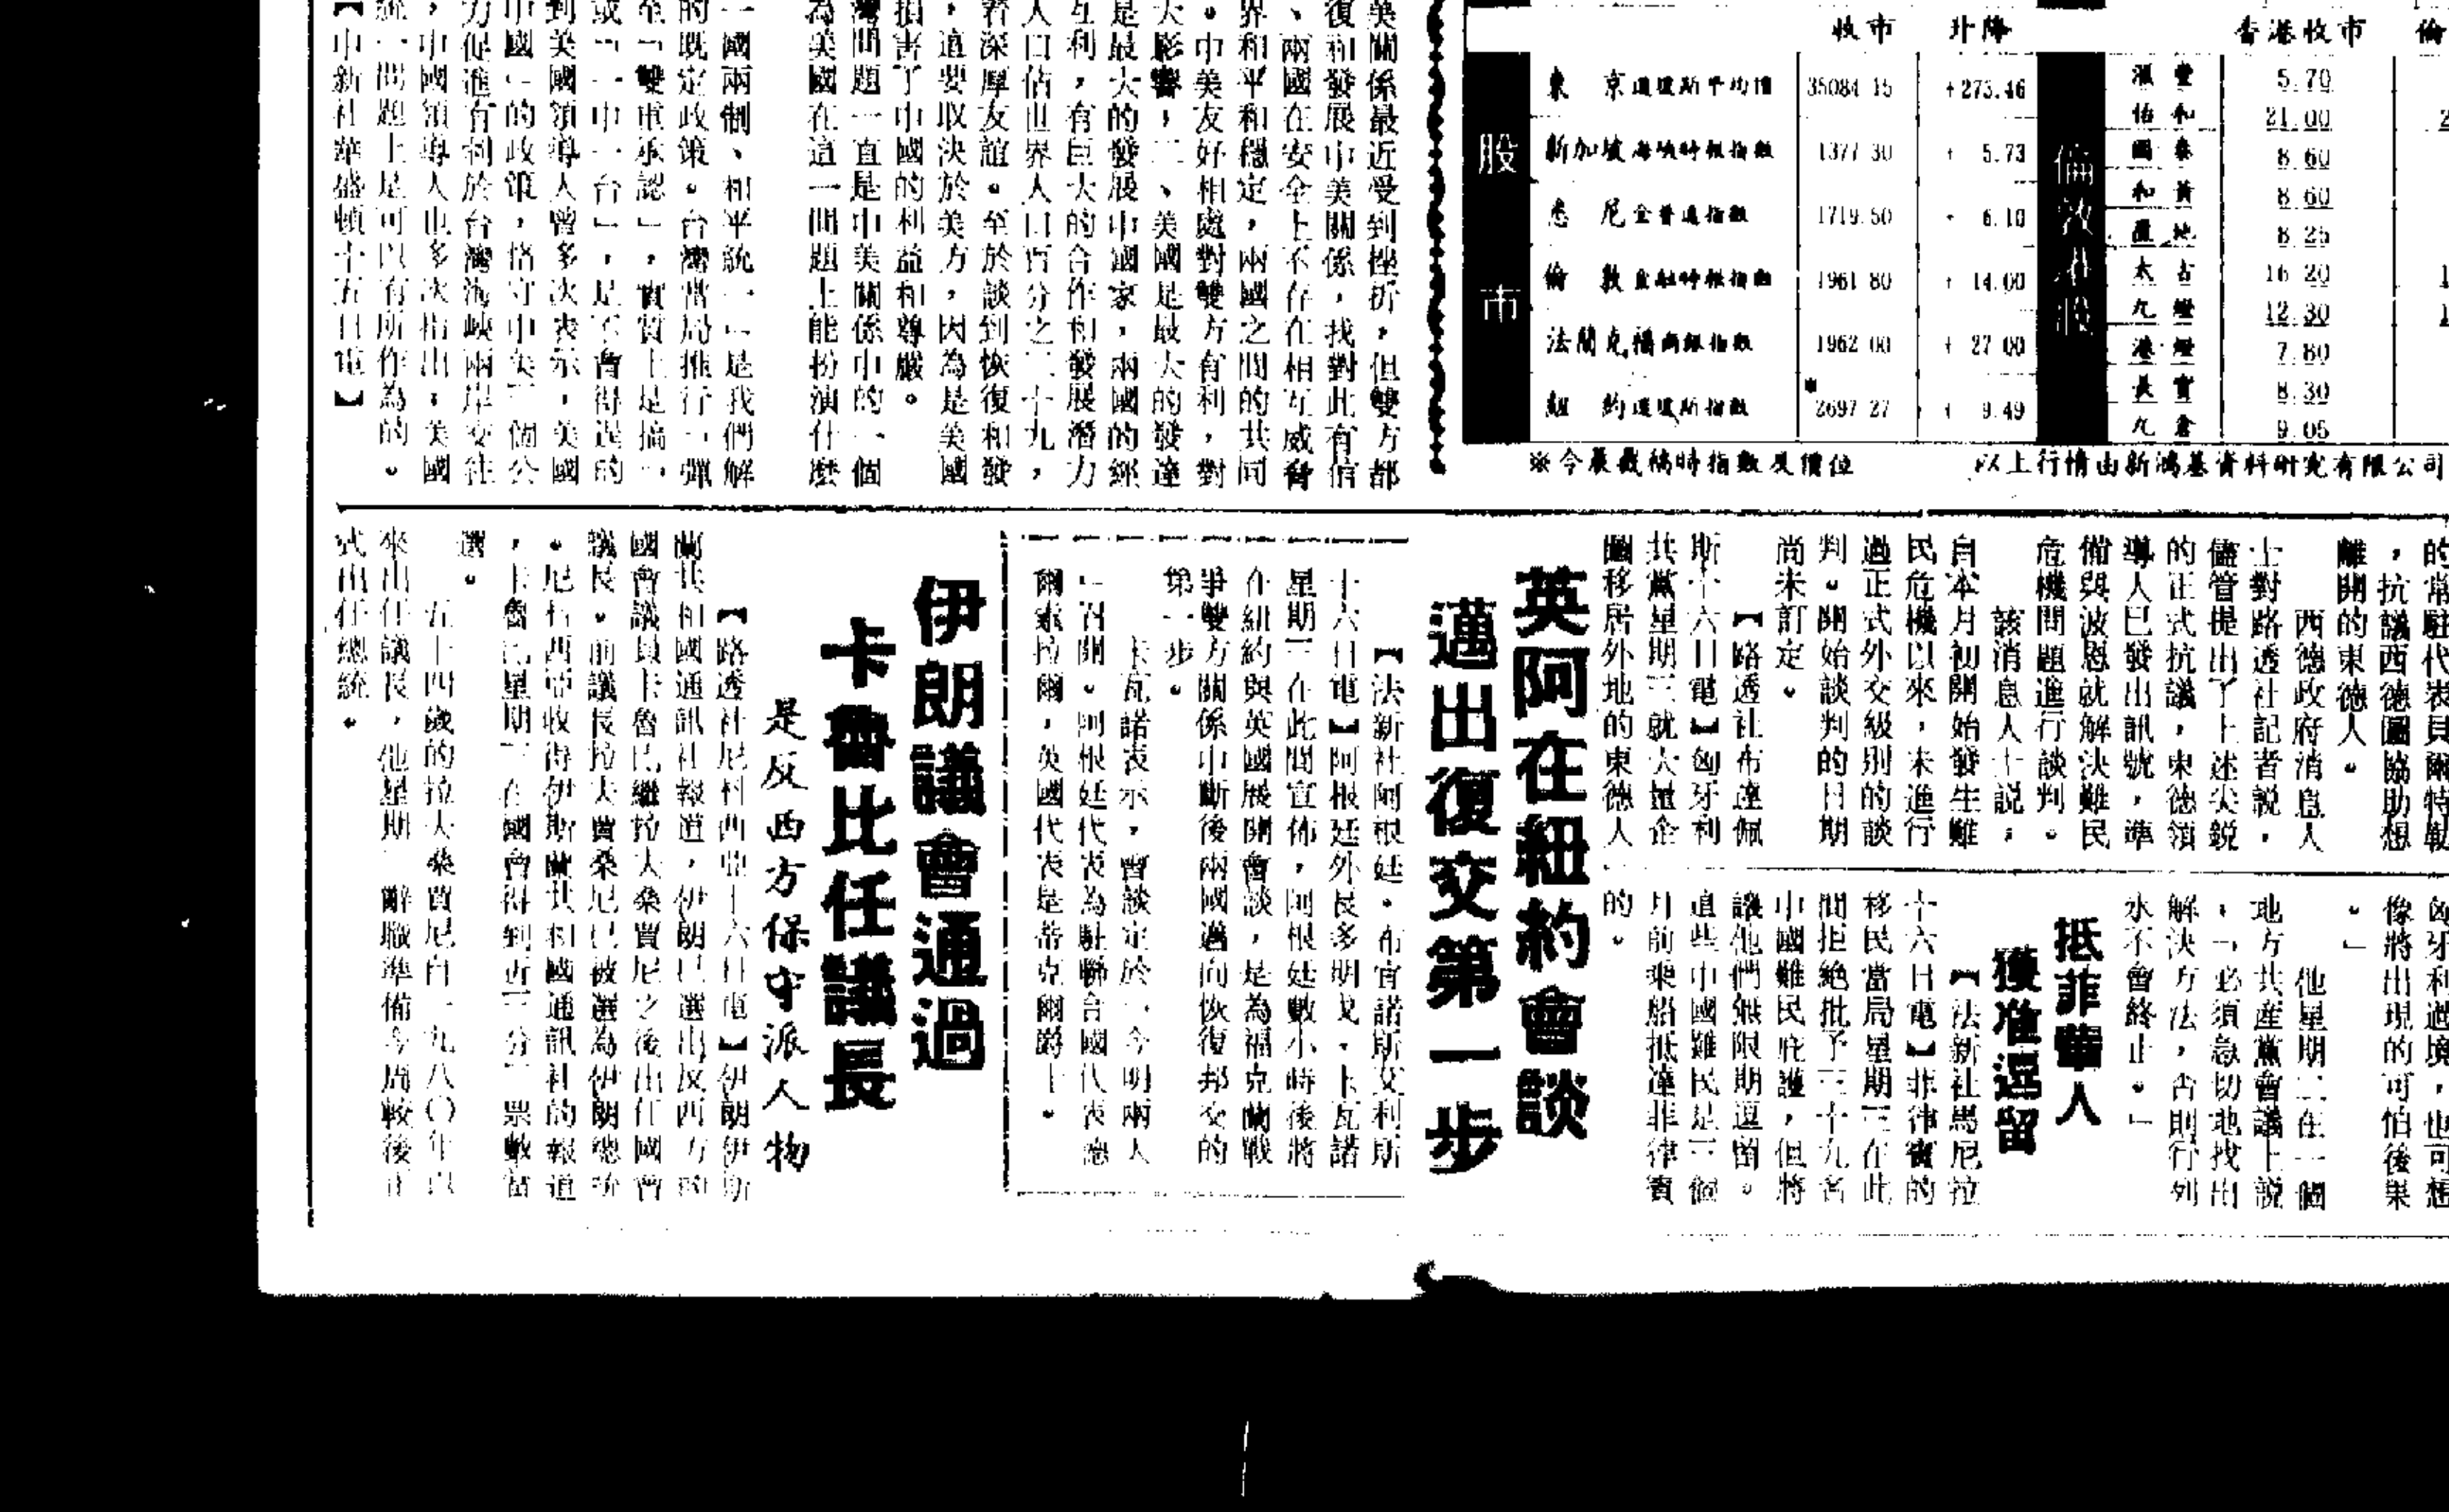 英關係最近受到挫折，但雙方都
復和發展中美關係，找對此有信
、兩國在安全上不存在相互威脅
界和平和穩定，兩國之間的共同
。中美友好相處對雙方有利，對
大影響，二、美國是最大的發達
是最大的發展中國家，兩國的經
互利，有巨大的合作和發展潛力
人口佔世界人口百分之二十九，
者深厚友誼。至於談到恢復和發
，這要取決於美方，因為是美國
損害了中國的利益和尊嚴。
灣問題一直是中美關係中的一個
為美國在這一問題上能扮演什麼
一國兩制、和平統一」是我們解
的既定政策。台灣當局推行「彈
至「雙重承認」，實質上是搞「
或「一中一台」，是不會得逞的
到美國領導人曾多次表示，美國
中國」的政策，恪守中美三個公
力促進有利於台灣海峽兩岸交往
，中國領導人也多次指出，美國
統一問題上是可以有所作為的。
【中新社華盛頓十五日電】
股市
收市 升降
東京道瓊斯平均值 35084.15 +273.46
新加坡海峽時報指數 1377.30 + 5.73
悉尼全普通指數 1719.50 + 6.10
倫敦金融時報指數 1961.80 + 14.00
法蘭克福商銀指數 1962.00 + 27.00
紐約道瓊斯指數 ※2697.27 + 9.49
倫敦港股
香港收市 倫
滙豐 5.70
怡和 21.00
國泰 8.60
和黃 8.60
置地 8.25
太古 16.20
九燈 12.30
港燈 7.80
長實 8.30
九倉 9.05
※今晨截稿時指數及價位
以上行情由新鴻基資料研究有限公司
的常駐代表貝爾特勒
，抗議西德圖協助想
離開的東德人。
西德政府消息人
士對路透社記者說，
儘管提出了上述尖銳
的正式抗議，東德領
導人已發出訊號，準
備與波恩就解決難民
危機問題進行談判。
該消息人士說，
自本月初開始發生難
民危機以來，未進行
過正式外交級別的談
判。開始談判的日期
尚未訂定。
【路透社布達佩
斯十六日電】匈牙利
共黨星期三就大量企
圖移居外地的東德人
匈牙利邊境，也可想
像將出現的可怕後果
。」
他星期二在一個
地方共產黨會議上說
，「必須急切地找出
解決方法，否則行列
永不會終止。」
抵菲華人
獲准逗留
【法新社馬尼拉
十六日電】菲律賓的
移民當局星期三在此
間拒絕批予三十九名
中國難民庇護，但將
讓他們無限期逗留。
這些中國難民是三個
月前乘船抵達菲律賓
的。
英阿在紐約會談
邁出復交第一步
【法新社阿根廷．布宜諾斯艾利斯
十六日電】阿根廷外長多明戈．卡瓦諾
星期三在此間宣佈，阿根廷數小時後將
在紐約與英國展開會談，是為福克蘭戰
爭雙方關係中斷後兩國邁向恢復邦交的
第一步。
卡瓦諾表示，會談定於「今明兩天
」召開。阿根廷代表為駐聯合國代表德
爾索拉爾，英國代表是蒂克爾爵士。
伊朗議會通過
卡魯比任議長
是反西方保守派人物
【路透社尼科西亞十六日電】伊朗伊斯
蘭共和國通訊社報道，伊朗已選出反西方的
國會議員卡魯比繼拉夫桑賈尼之後出任國會
議長。前議長拉夫賈桑尼已被選為伊朗總統
。尼科西亞收得伊斯蘭共和國通訊社的報道
，卡魯比星期二在國會得到近三分二票數當
選。
五十四歲的拉夫桑賈尼自一九八〇年以
來出任議長，他星期一辭職準備今周較後正
式出任總統。